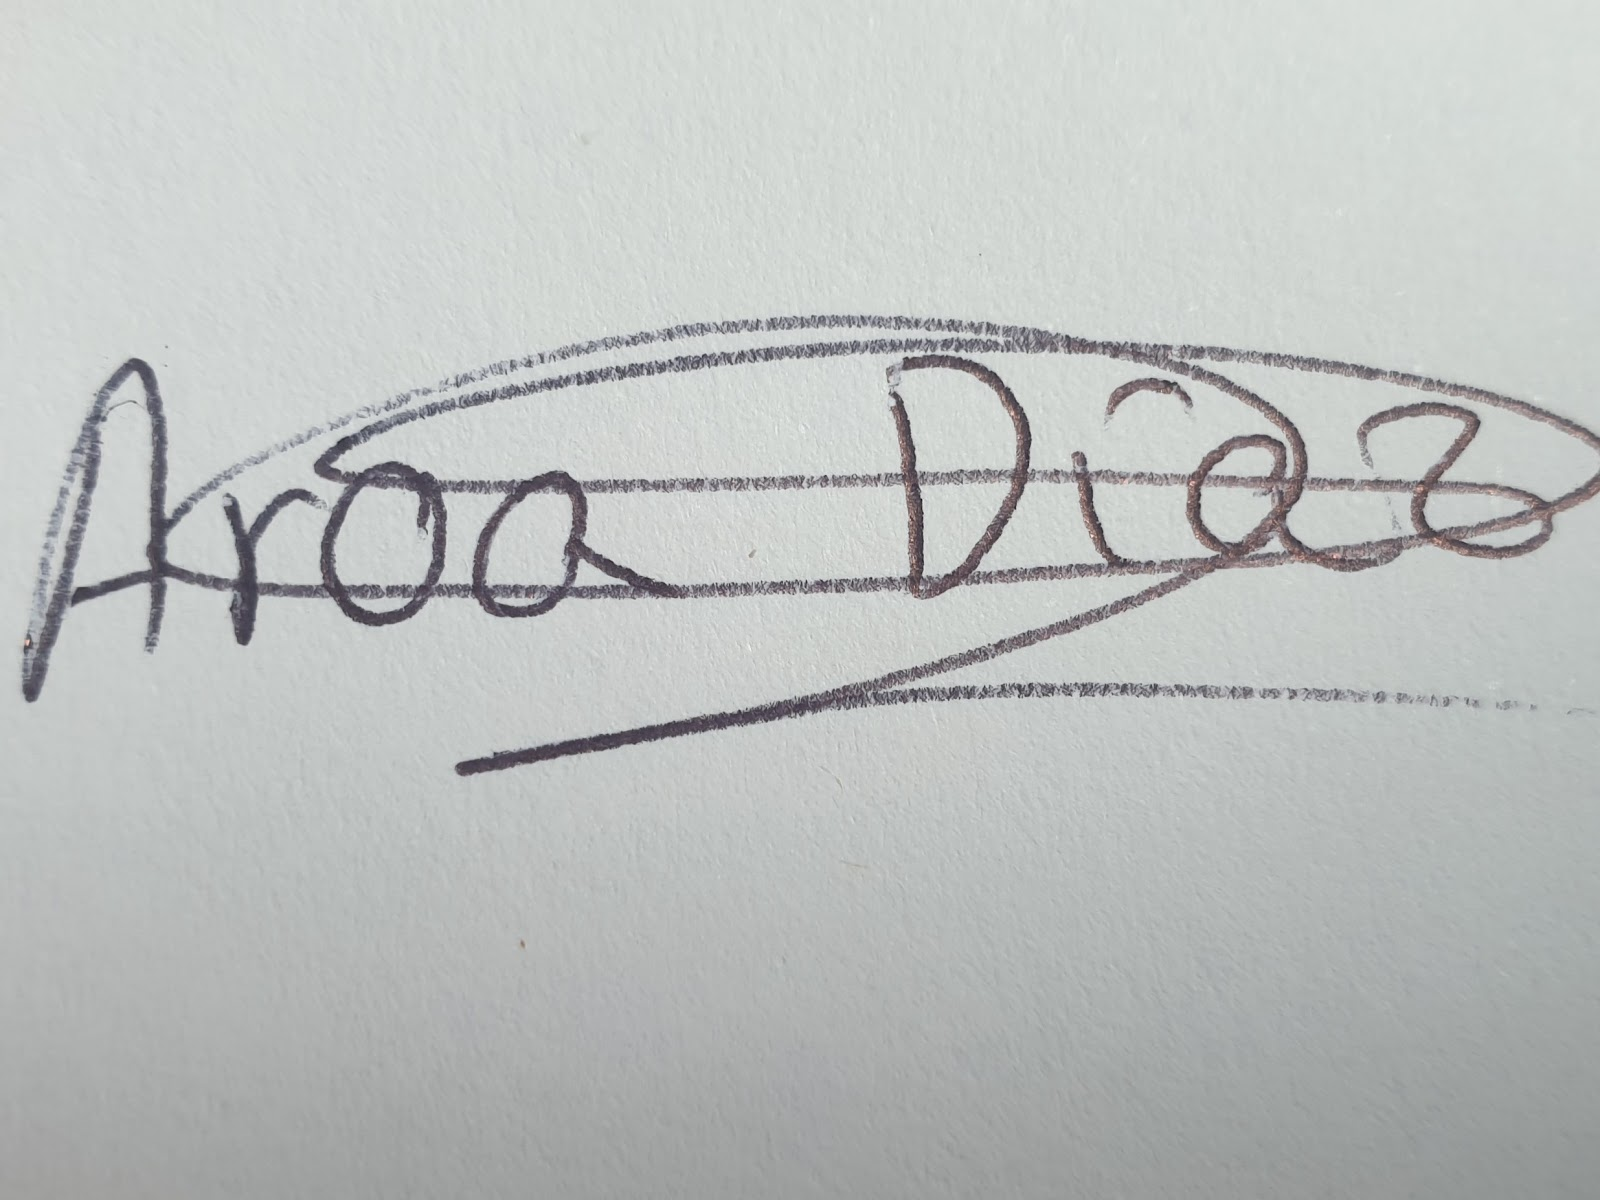 Aroa Díaz